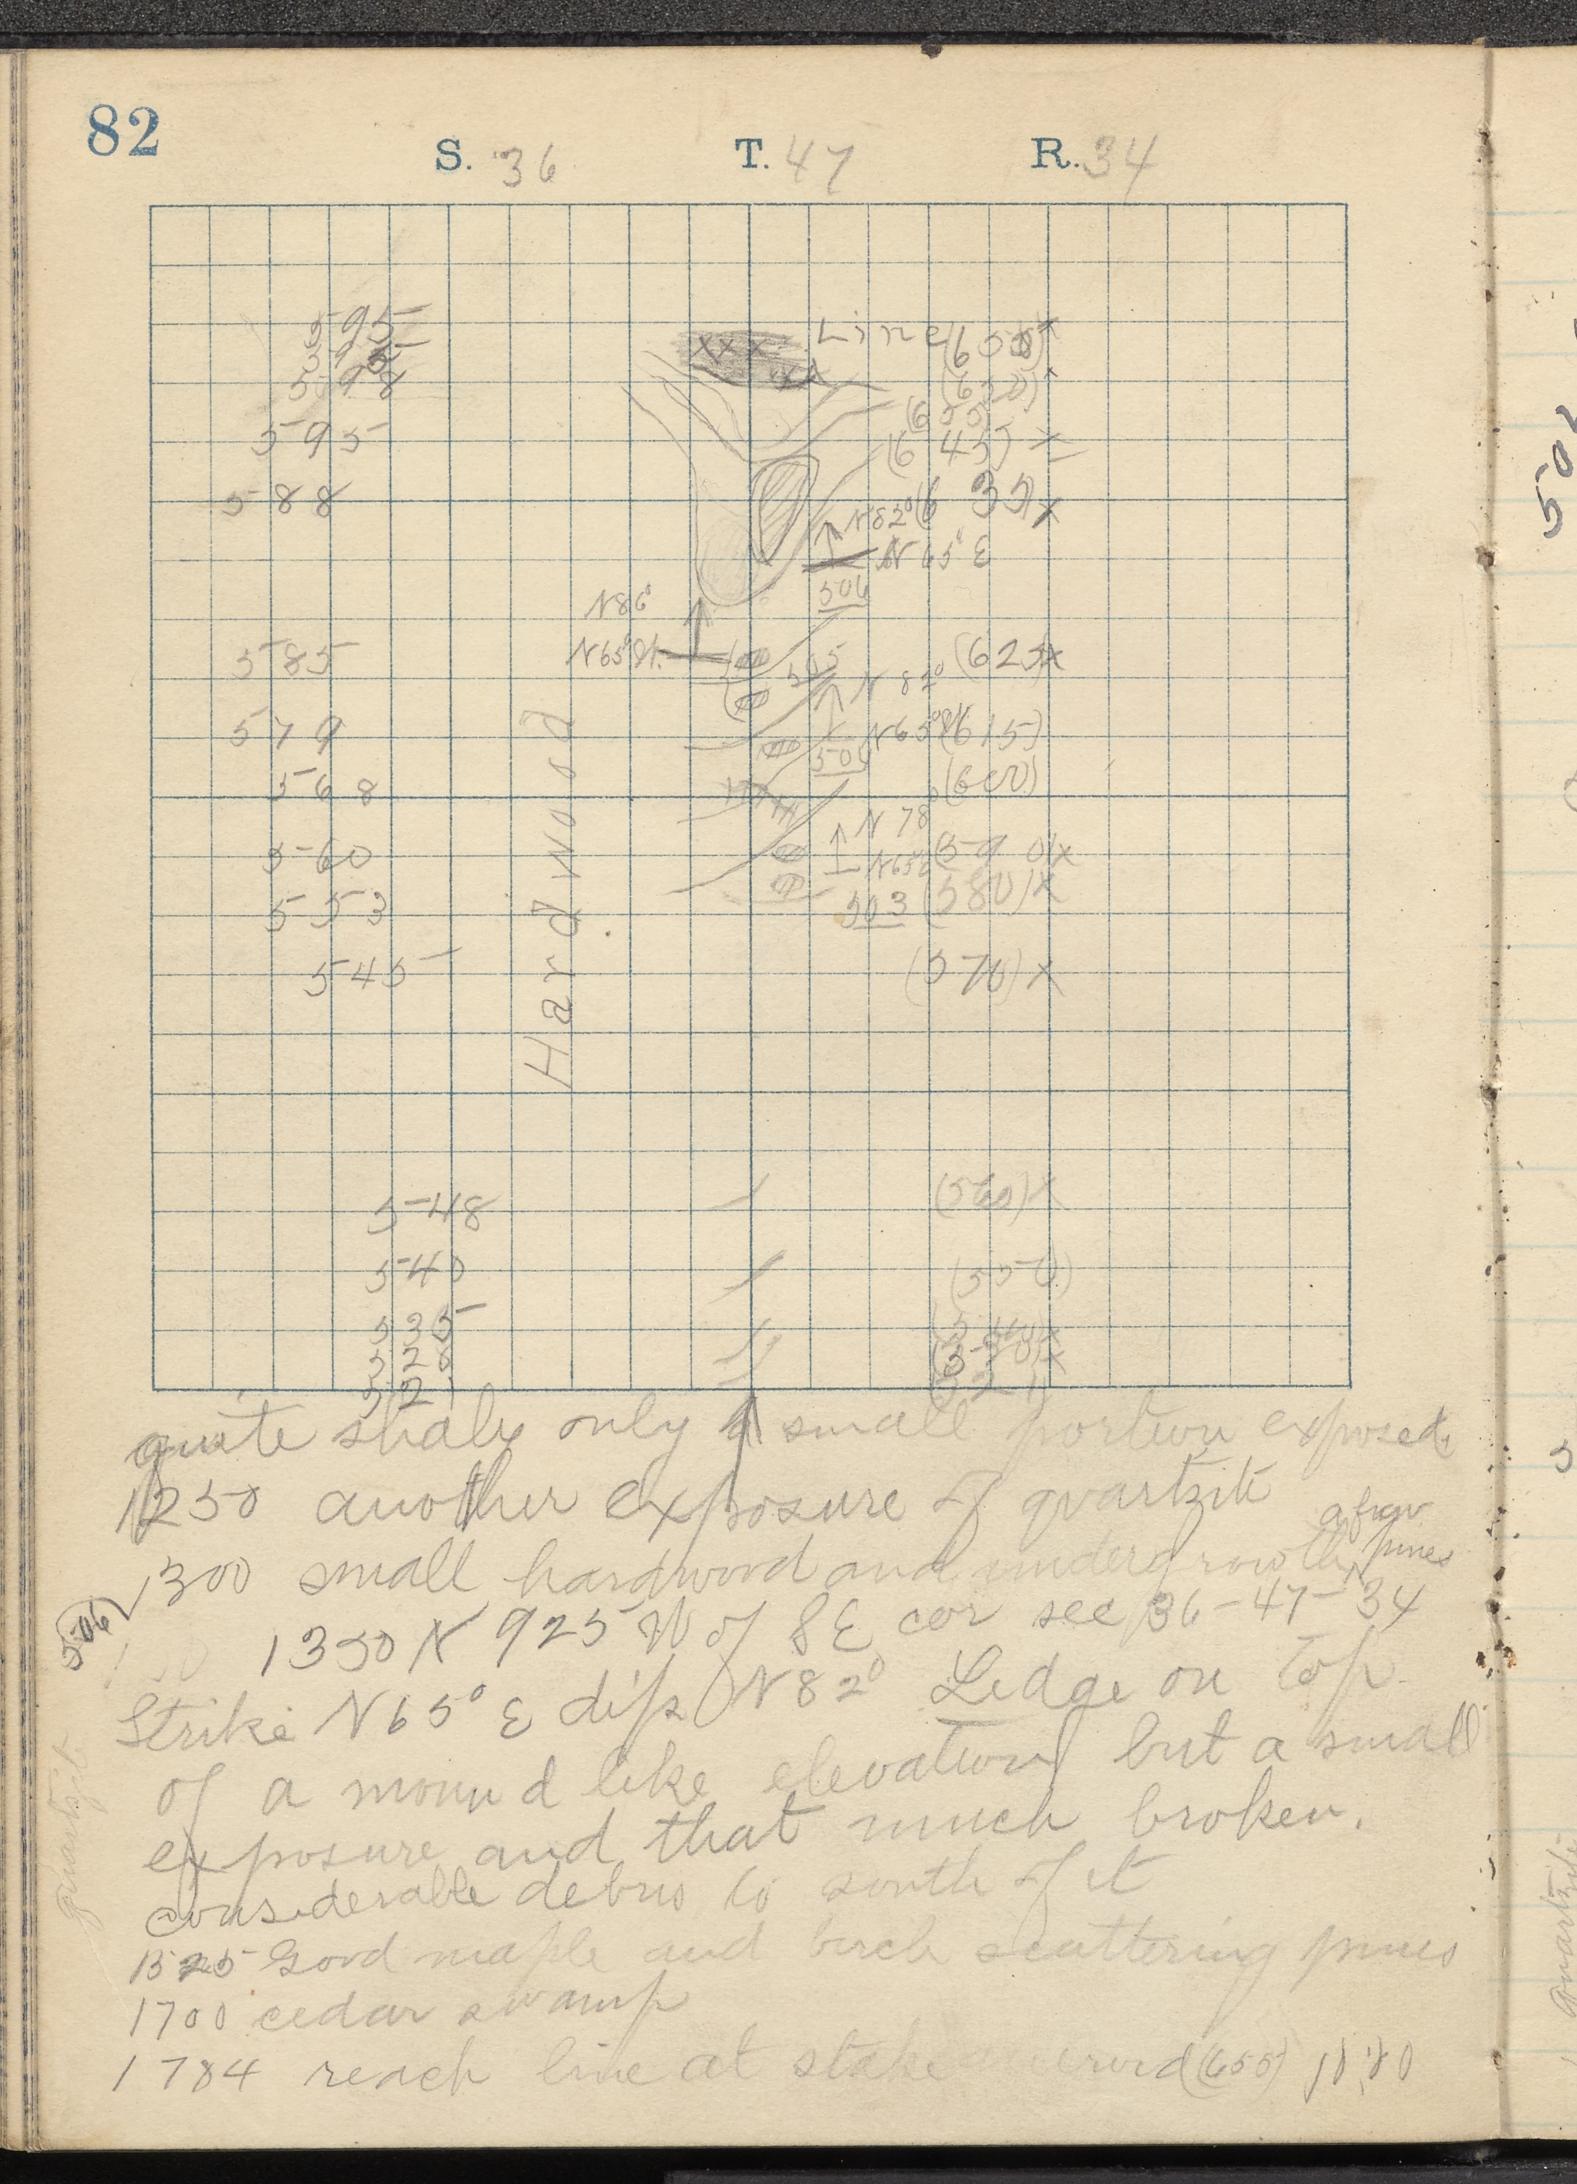 82
S. 36 T. 47 R. 34
595
598
595
588
585
579
568
560
553
545
548
540
535
528
521
Hardwood
Line
(630)
(655)
(645) x
(635) x
N82°
N 65° E
506
N86°
N65°
505
(625) x
N 82°
(615)
(600)
N 78°
(590) x
503 (580) x
(570) x
(560) x
(550)
quite shaly only a small portion exposed
1250 another exposure of quartzite
1300 small hardwood and undergrowth a few pines
506
1350 N 925 W of SE cor sec 36-47-34
Strike N65° E dip N82° Ledge on top
of a mound like elevation but a small
exposure and that much broken.
considerable debris to south of it
quartzite
1525 Good maple and birch scattering pines
1700 cedar swamp
1784 reach line at stake (655)